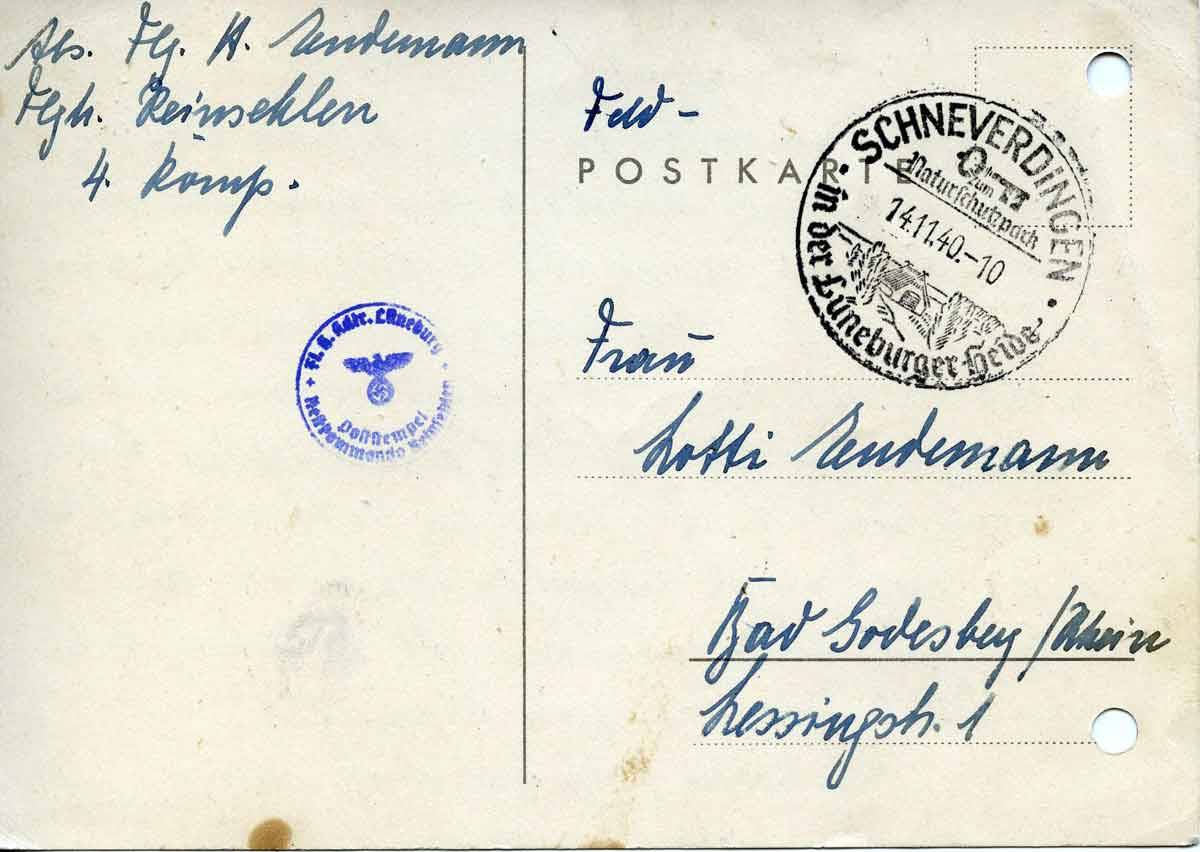 Abs. Flg. H. Endemann
Flgh. Reinsehlen
4. Komp.
Feld-
POSTKARTE
SCHNEVERDINGEN
zum
Naturschutzpark
14.11.40.-10
in der Lüneburger Heide
Fl. H. Kdtr. Lüneburg
Poststempel
Frau
Lotti Endemann
Bad Godesberg /Rhein
Lessingstr. 1